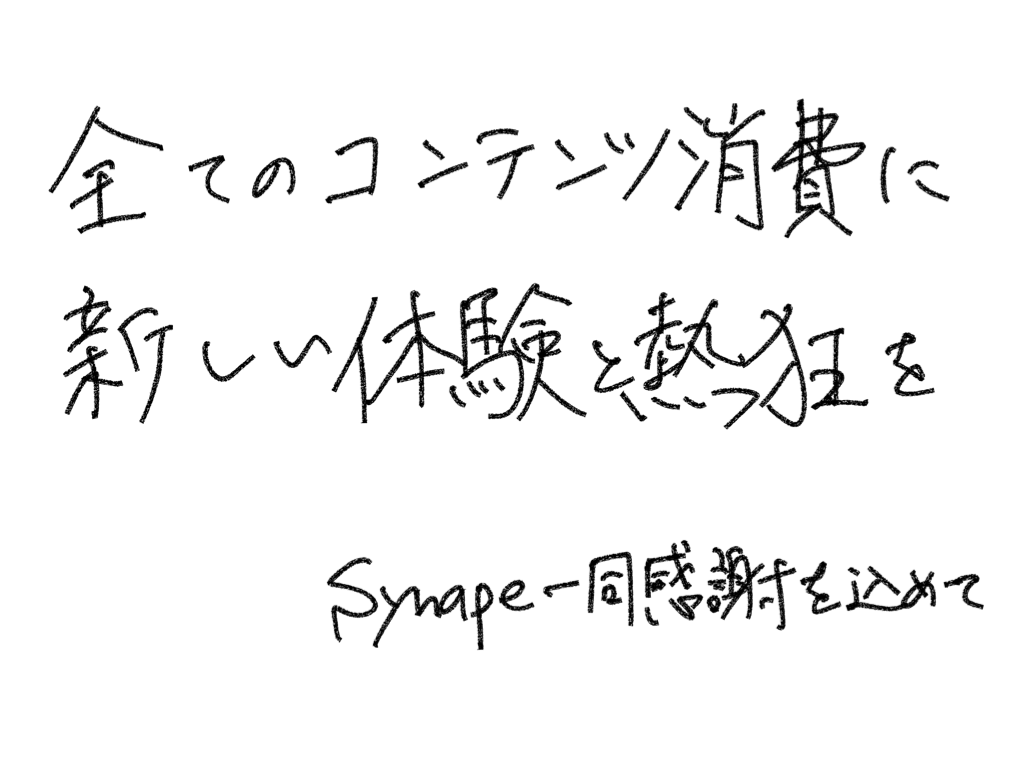 全てのコンテンツ消費に
新しい体験と熱狂を
Synape一同感謝を込めて